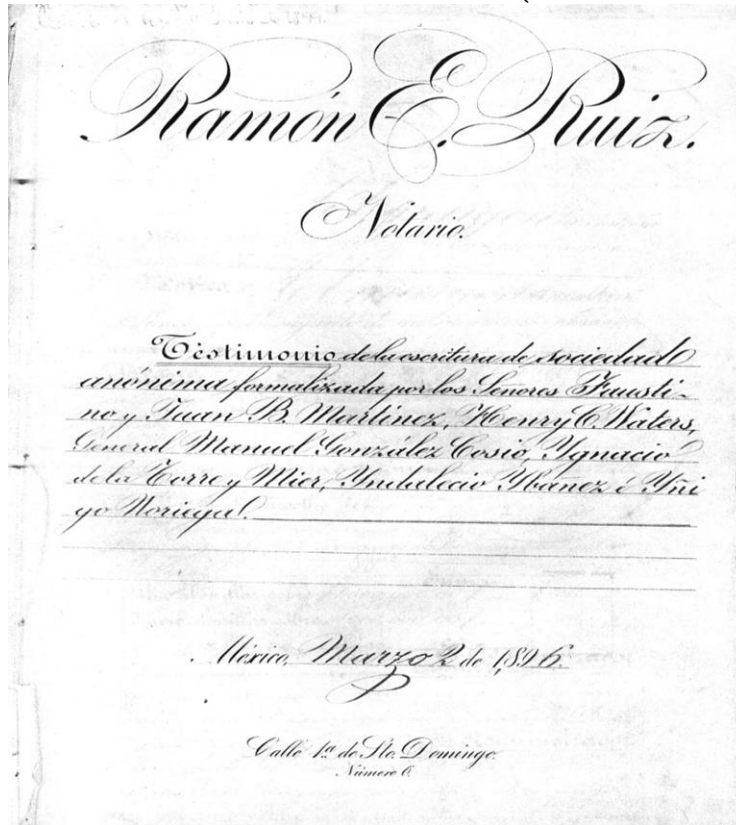 Ramón E. Ruiz.
Notario.
Testimonio de la escritura de sociedad
anónima formalizada por los Señores Fausti-
no y Juan B. Martinez, Henry C. Waters,
General Manuel González Cosio, Ygnacio
de la Torre y Mier, Yndalecio Ybanez é Yñi
go Noriega.
México, Marzo 2 de 1896.
Calle 1ª de Sto. Domingo.
Número 6.